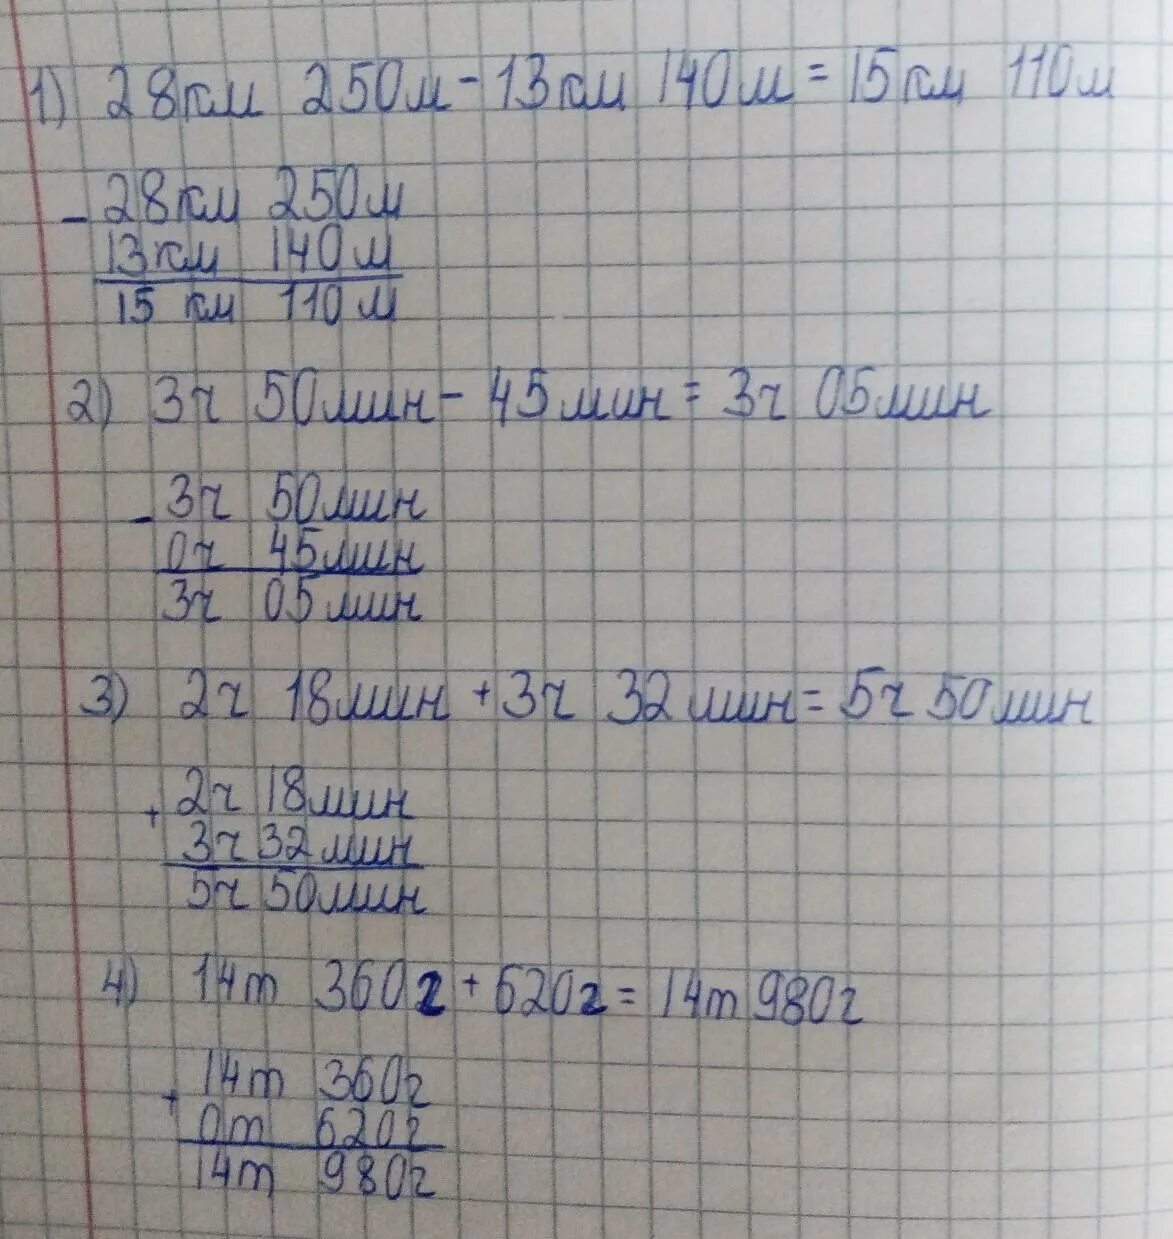 1) 28км 250м - 13км 140м = 15км 110м
- 28км 250м
13км 140м
15 км 110м
2) 3ч 50мин - 45мин = 3ч 05мин
- 3ч 50мин
0ч 45мин
3ч 05мин
3) 2ч 18мин + 3ч 32мин = 5ч 50мин
+ 2ч 18мин
3ч 32мин
5ч 50мин
4) 14т 360г + 620г = 14т 980г
+ 14т 360г
0т 620г
14т 980г